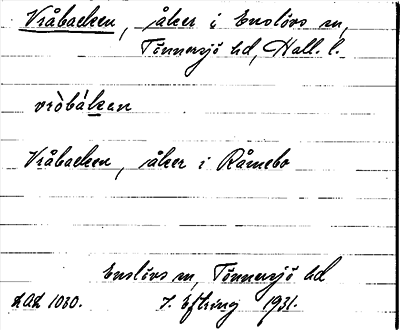 Vråbacken, åker i Enslövs sn,
Tönnersjö hd, Hall. l.
vròbákan
Vråbacken, åker i Råmebo
Enslövs sn, Tönnersjö hd
LAL 1030. J. Efring 1931.